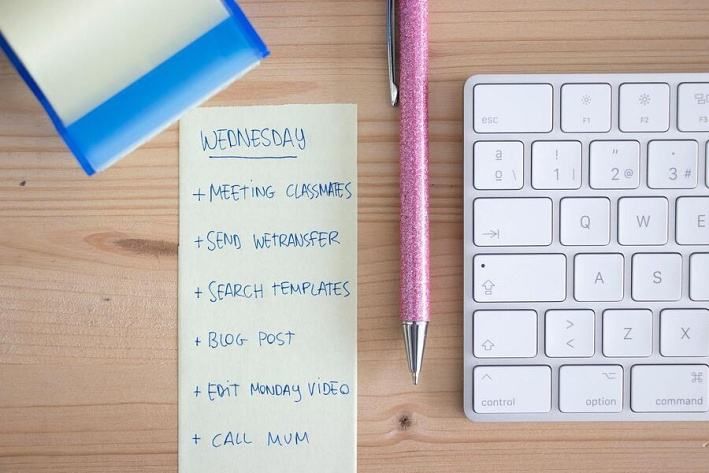 WEDNESDAY
+ MEETING CLASSMATES
+ SEND WETRANSFER
+ SEARCH TEMPLATES
+ BLOG POST
+ EDIT MONDAY VIDEO
+ CALL MUM
esc F1 F2 F3
a º \ ! 1 | " 2 @ · 3 #
Q W E
A S
> < Z X
control option command